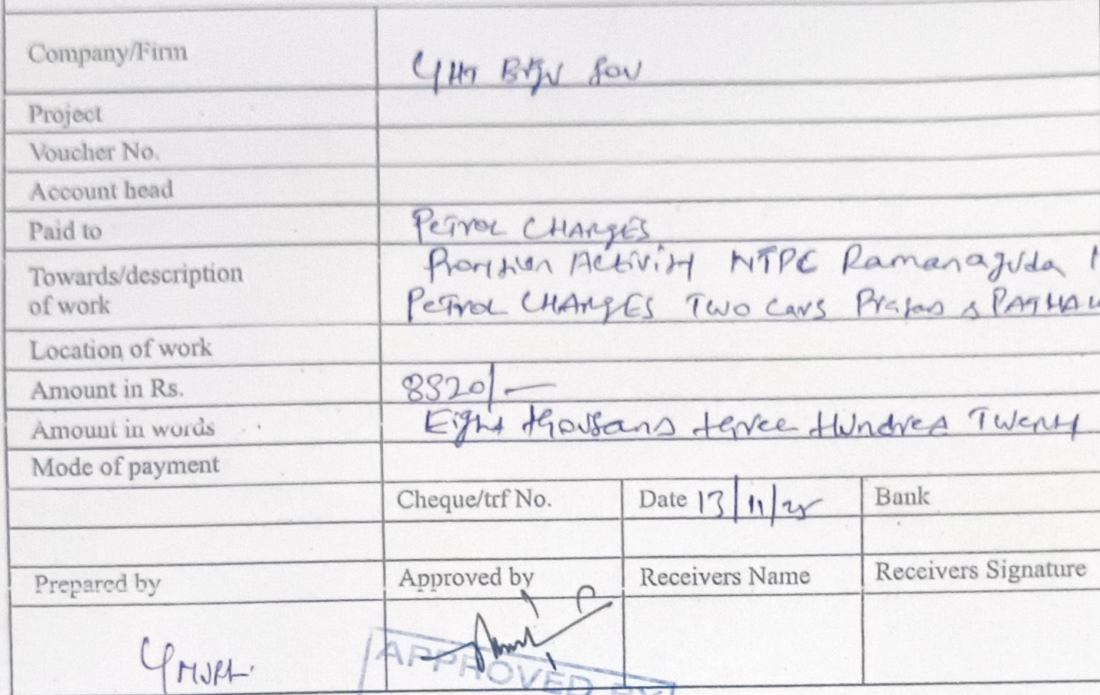 Company/Firm
Project
Voucher No.
Account head
Paid to Petrol CHARGES
Towards/description Activity NTPC Ramanaguda
of work Petrol CHARGES Two Cars & PATHAN
Location of work
Amount in Rs. 8320/-
Amount in words Eight thousand three Hundred Twenty
Mode of payment
Cheque/trf No. Date 13/11/25 Bank
Prepared by Approved by Receivers Name Receivers Signature
APPROVED BY